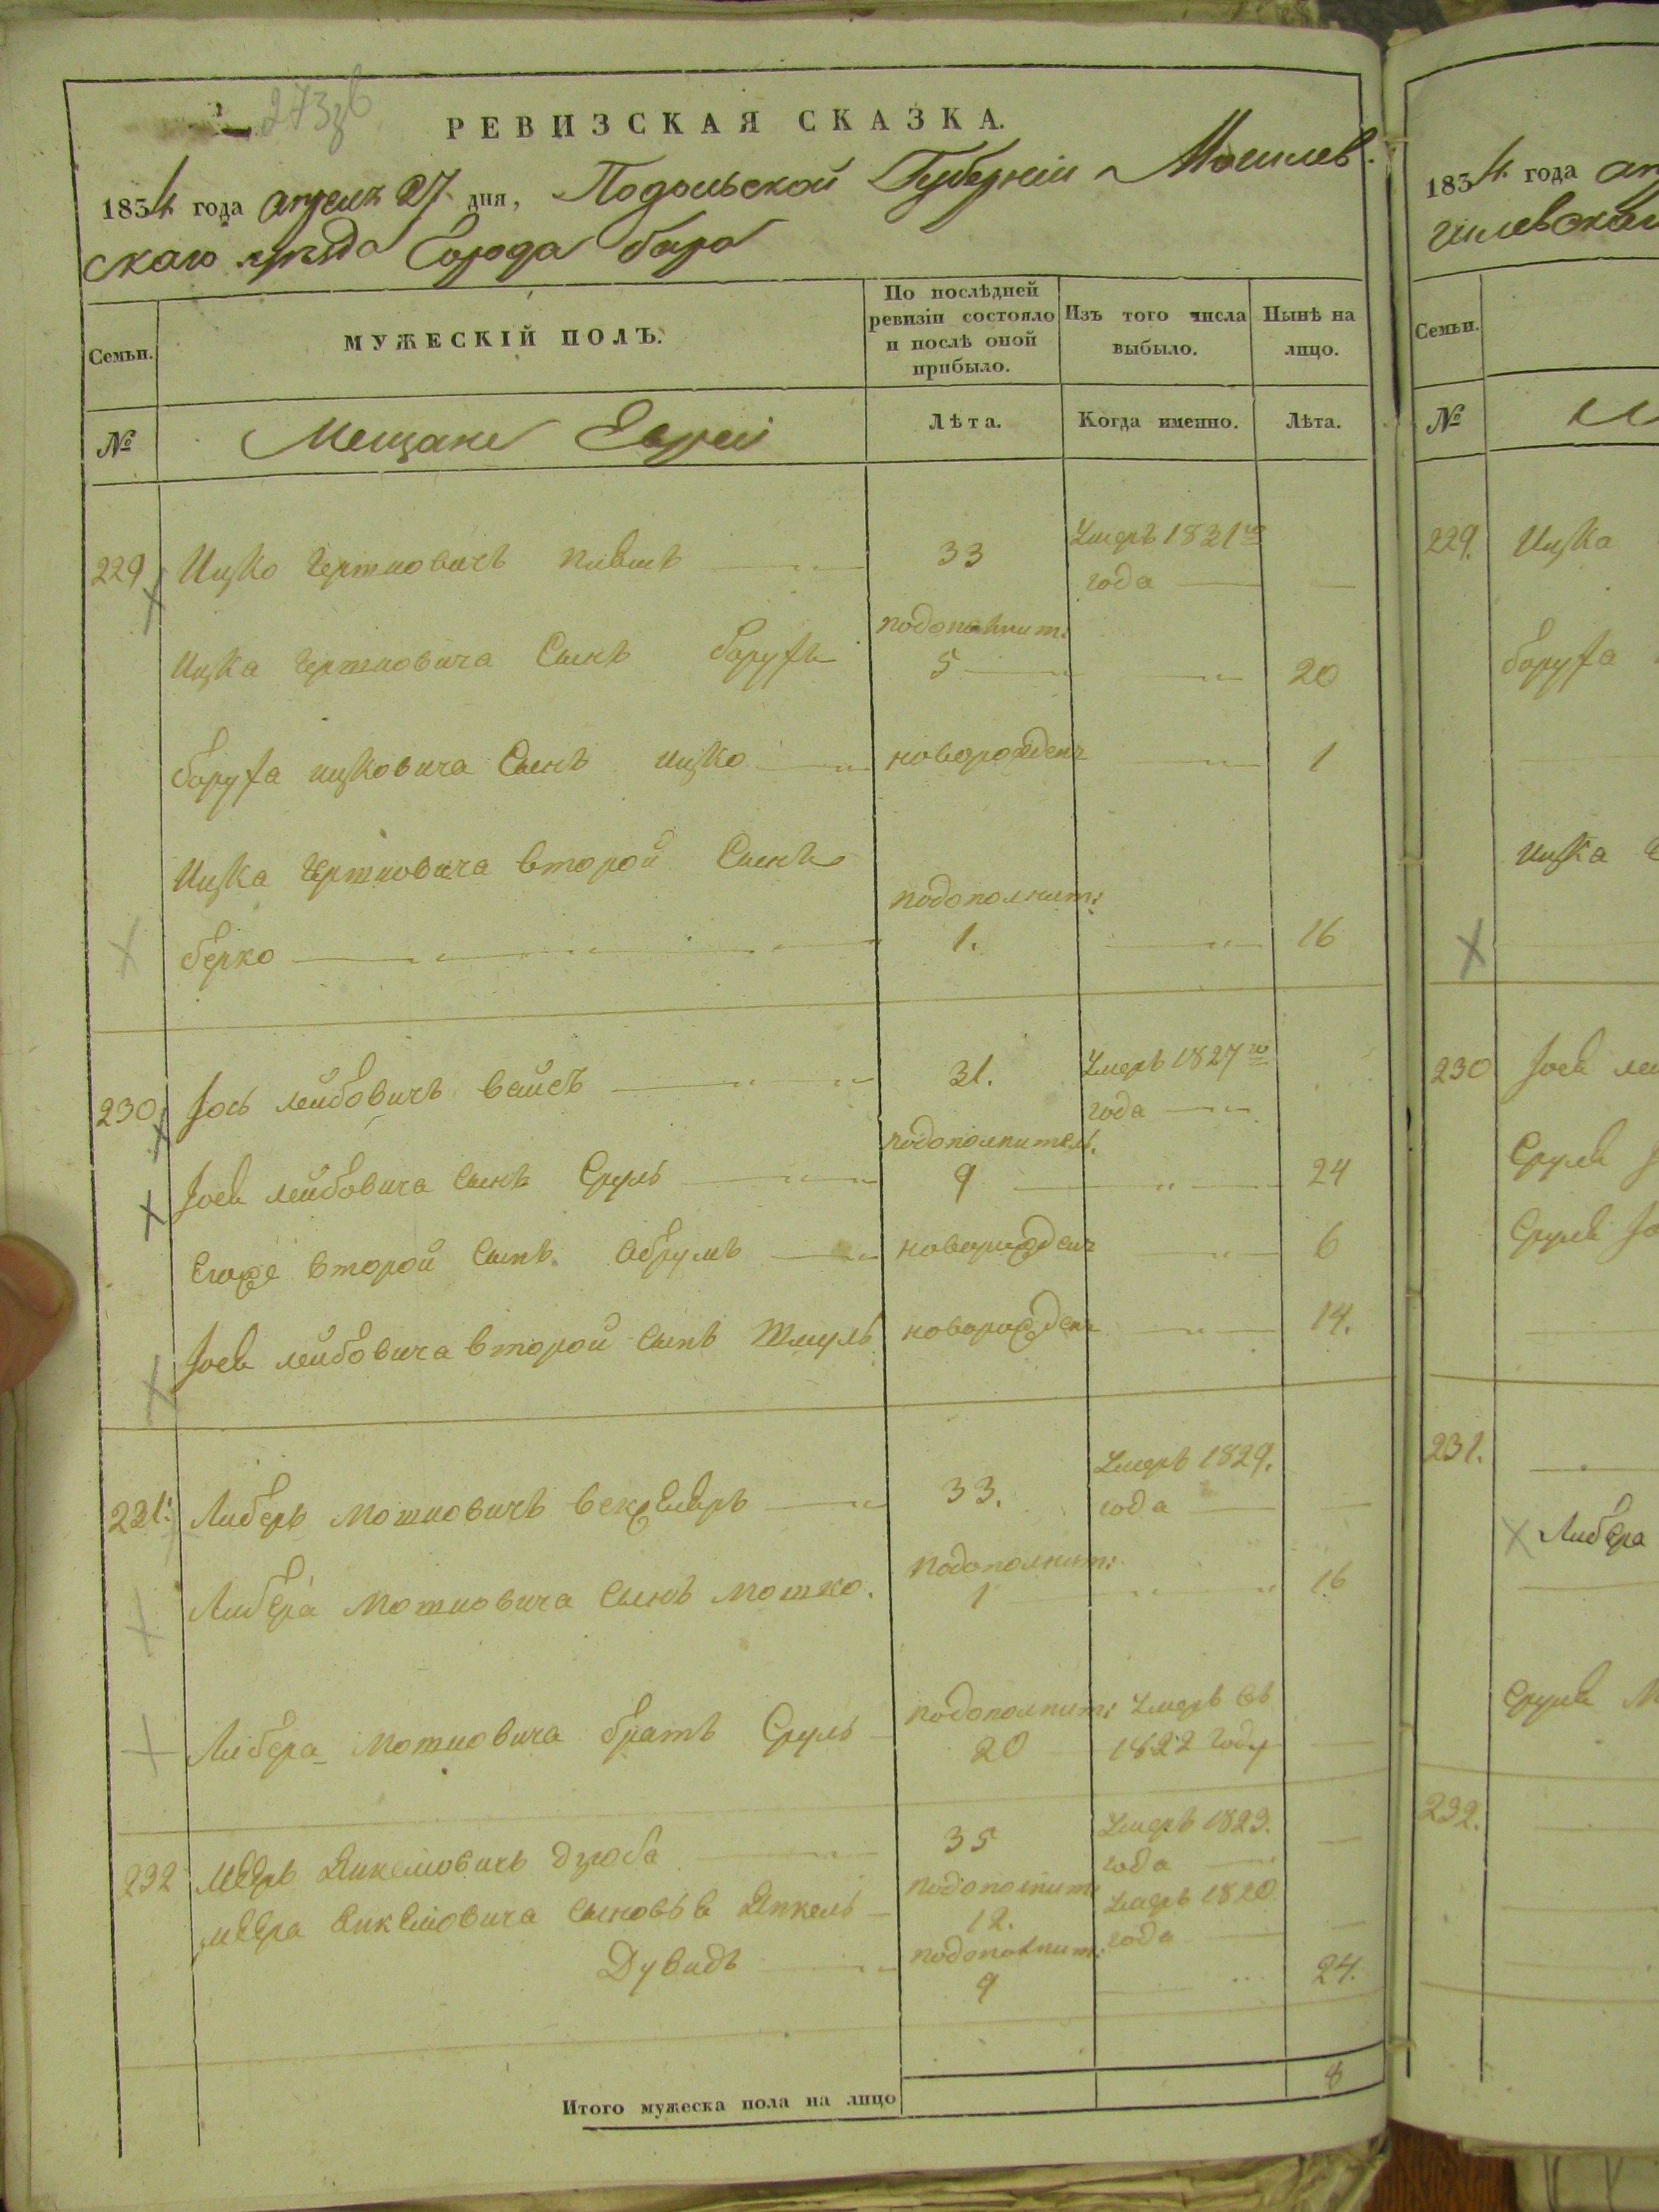 273зв
РЕВИЗСКАЯ СКАЗКА.
1834 года апреля 27 дня, Подольской Губернии Могилев
скаго уезда Города бара
Семьи. МУЖЕСКІЙ ПОЛЪ. По послѣдней ревизіи состояло и послѣ оной прибыло. Изъ того числа выбыло. Нынѣ на лицо.
№ Мещане Евреи Лѣта. Когда именно. Лѣта.
229 Ицко Гершковичъ 33 Умеръ 1831го года
Ицка Гершковича Сынъ борухъ подополнит: 5 20
боруха ицковича Сынъ ицко новорожденъ 1
Ицка Гершковича второй Сынъ
берко подополнит: 1. 16
230 Іось лейбовичъ вайсъ 31. Умеръ 1827го года
Іося лейбовича сынъ Сруль подополнитель. 9 24
Его же второй сынъ Абрумъ новорожденъ 6
Іося лейбовича второй сынъ Шмуль новорожденъ 14.
231: Либеръ Мошковичъ 33. Умеръ 1829. года
Либера Мошковича сынъ мошко. подополнит: 1 16
Либера Мошковича братъ Сруль подополнит: 20 Умеръ въ 1822 году
232 Мееръ Янкелювичъ дзюба 35 Умеръ 1823. года
Меера Янкелювича сыновья Янкель подополнит: 12. Умеръ 1820 года
Дувидъ подополнит. 9 24.
Итого мужеска пола на лицо 8
1834 года
Семьи.
№
229. Ицка
боруха
Ицка
230 Іося
Сруля
Сруля
231.
Либера
Сруля
232.